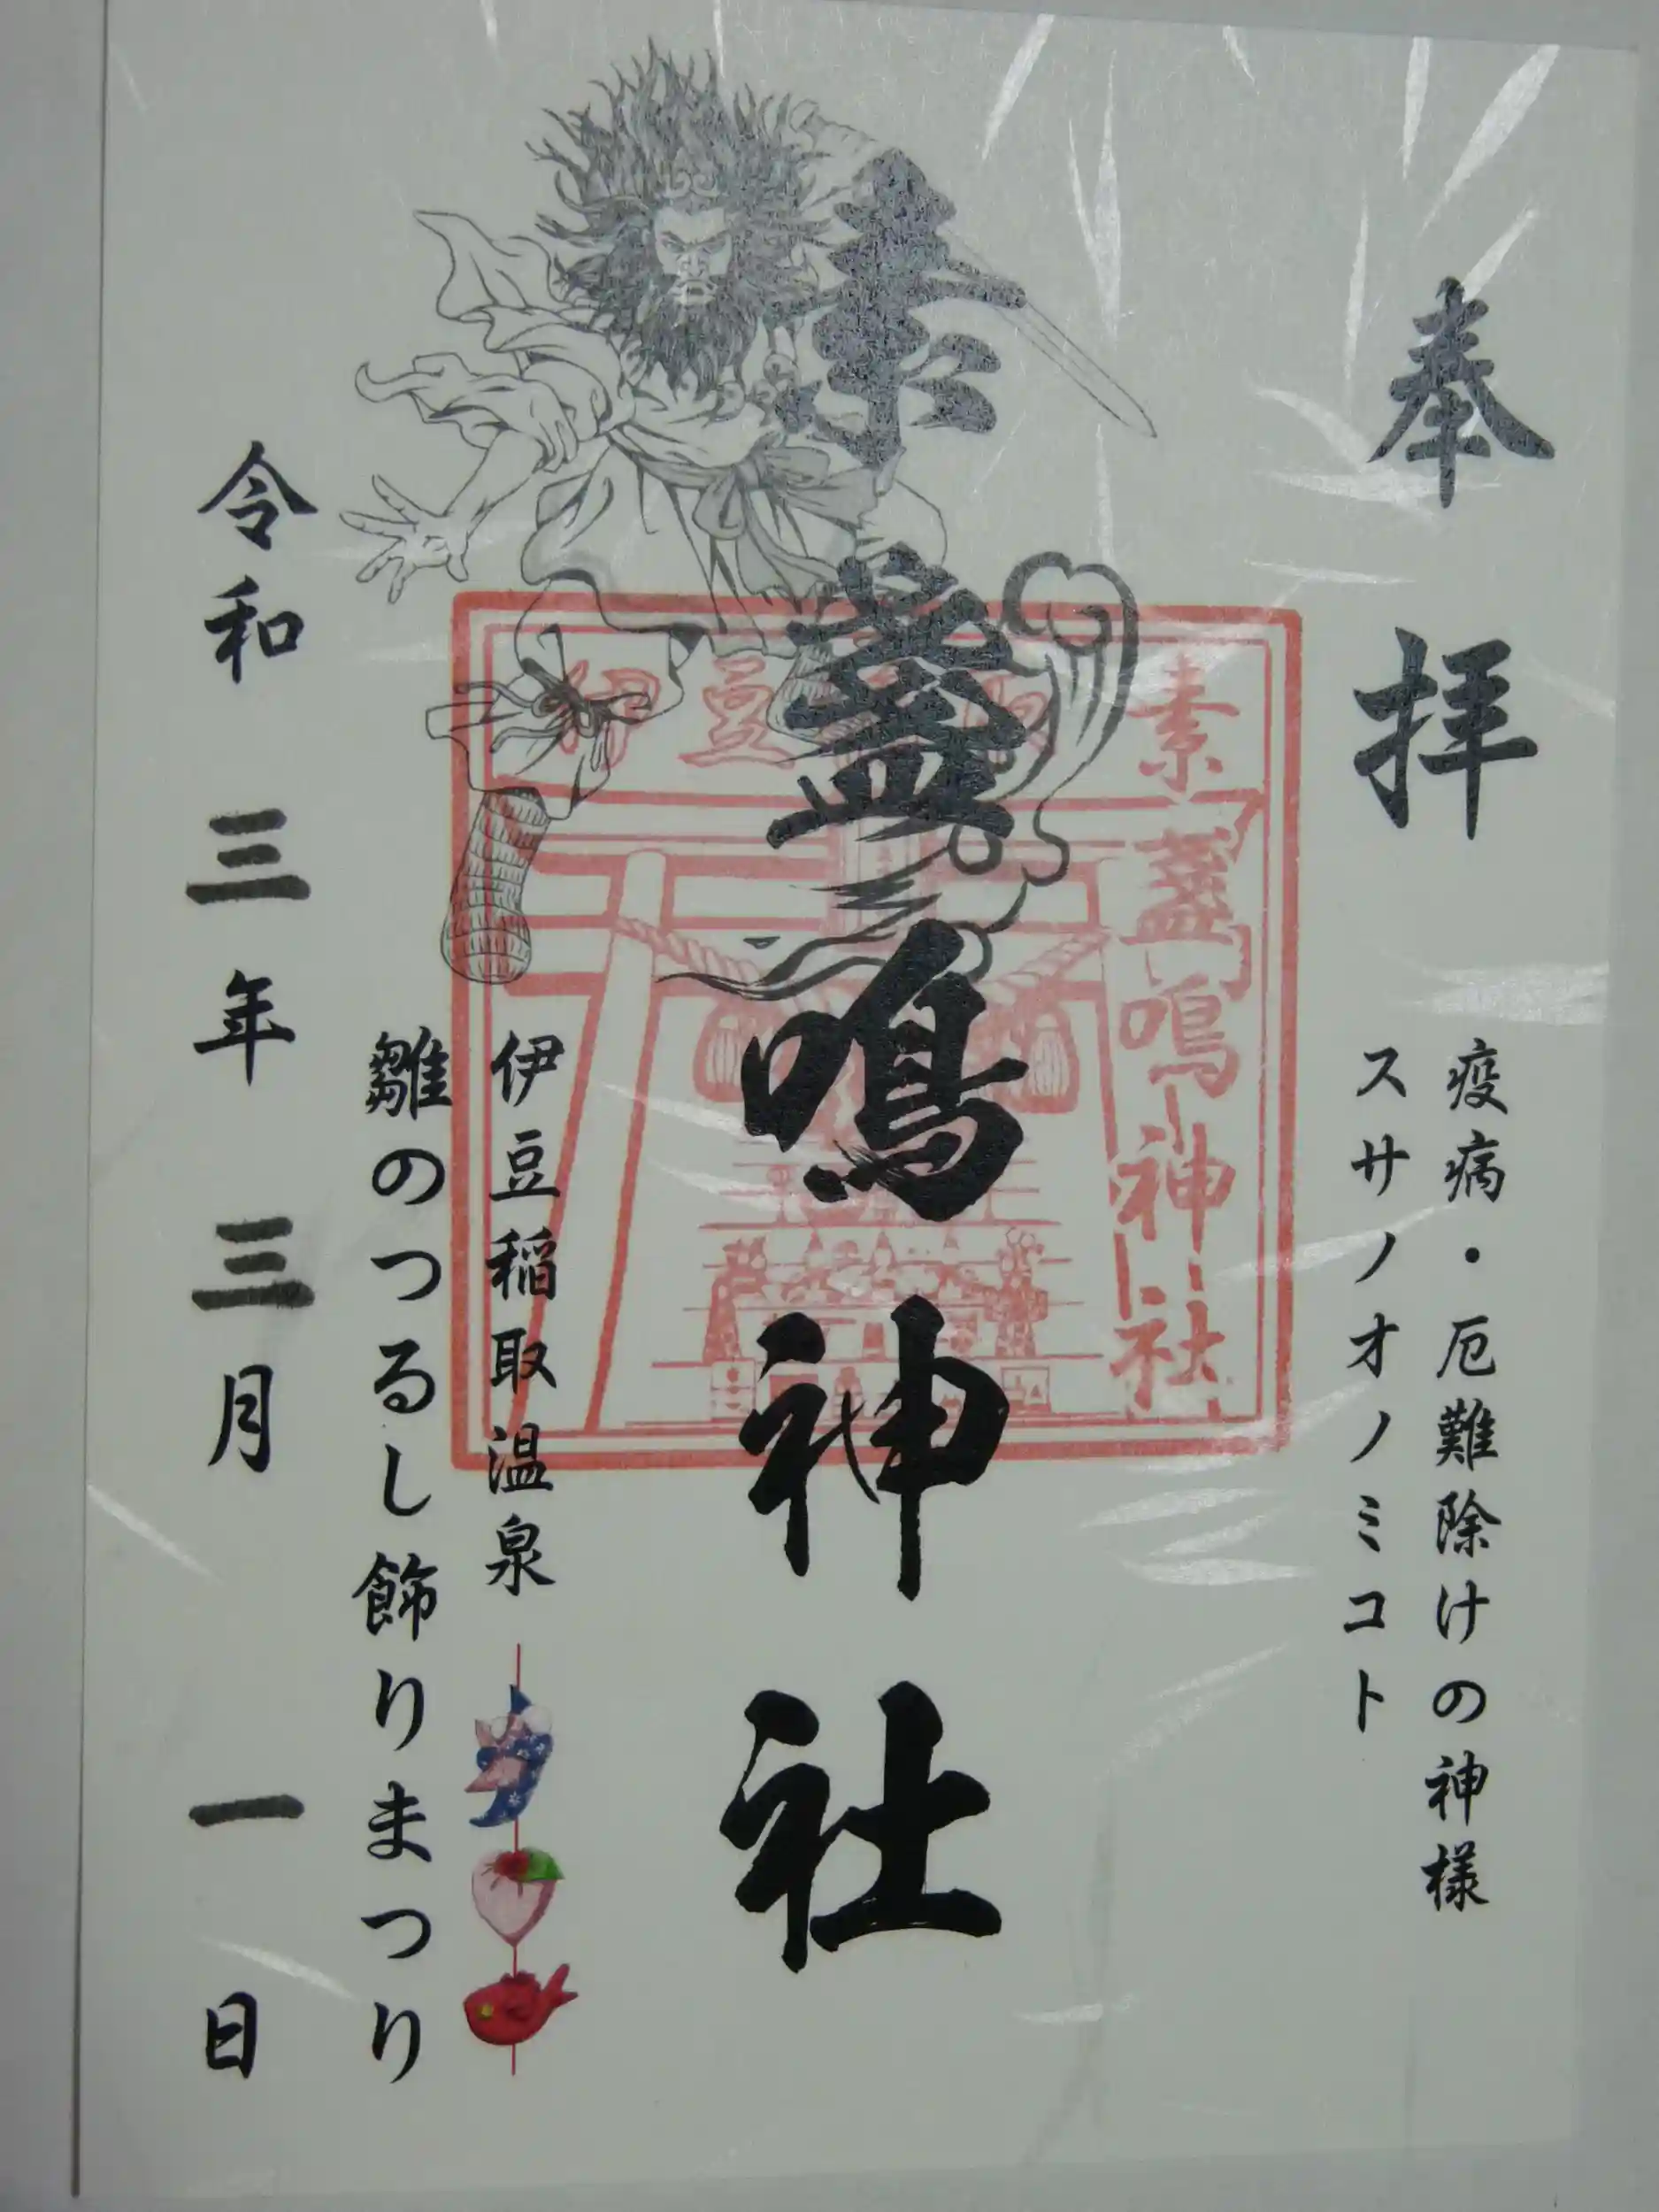 奉拝
疫病・厄難除けの神様
スサノオノミコト
素盞鳴神社
素盞鳴神社
伊豆稲取温泉
雛のつるし飾りまつり
令和三年三月一日